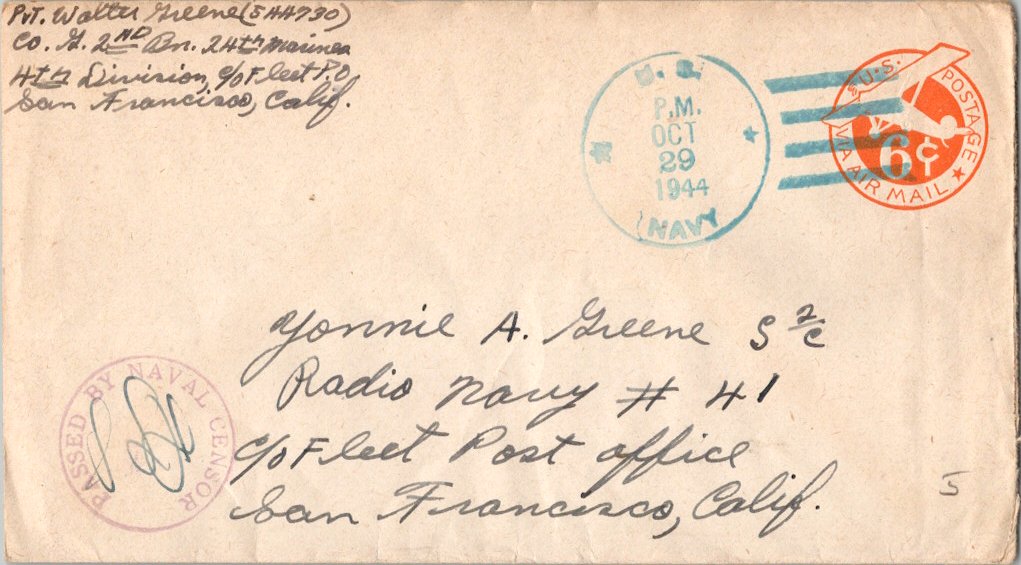 Pvt. Walter Greene (544730)
Co. G. 2ND Bn. 24th Marines
4th Division, c/o Fleet P.O.
San Francisco, Calif.
U.S.
P.M.
OCT
29
1944
NAVY
U.S. POSTAGE
6¢
VIA AIR MAIL
Yonnie A. Greene S 2/c
Radio Navy # 41
c/o Fleet Post office
San Francisco, Calif.
PASSED BY NAVAL CENSOR
5